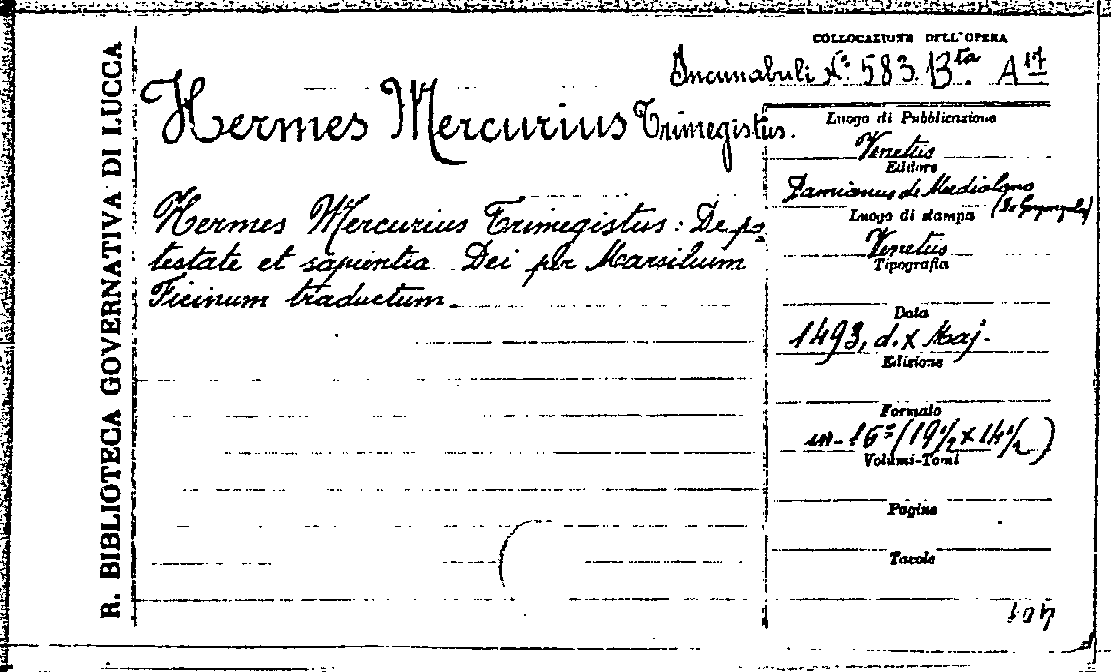 R. BIBLIOTECA GOVERNATIVA DI LUCCA
COLLOCAZIONE DELL'OPERA
Incunabuli N.º 583. Bta A 17
Hermes Mercurius Trimegistus.
Hermes Mercurius Trimegistus: De po
testate et sapientia Dei per Marsilium
Ficinum traductum.
Luogo di Pubblicazione
Venetus
Editore
Damianus de Mediolano
Luogo di stampa
Venetus
Tipografia
Data
1493, d. x Maj.
Edizione
Formato
in-16º (19 1/2 x 14 1/2)
Volumi-Tomi
Pagine
Tavole